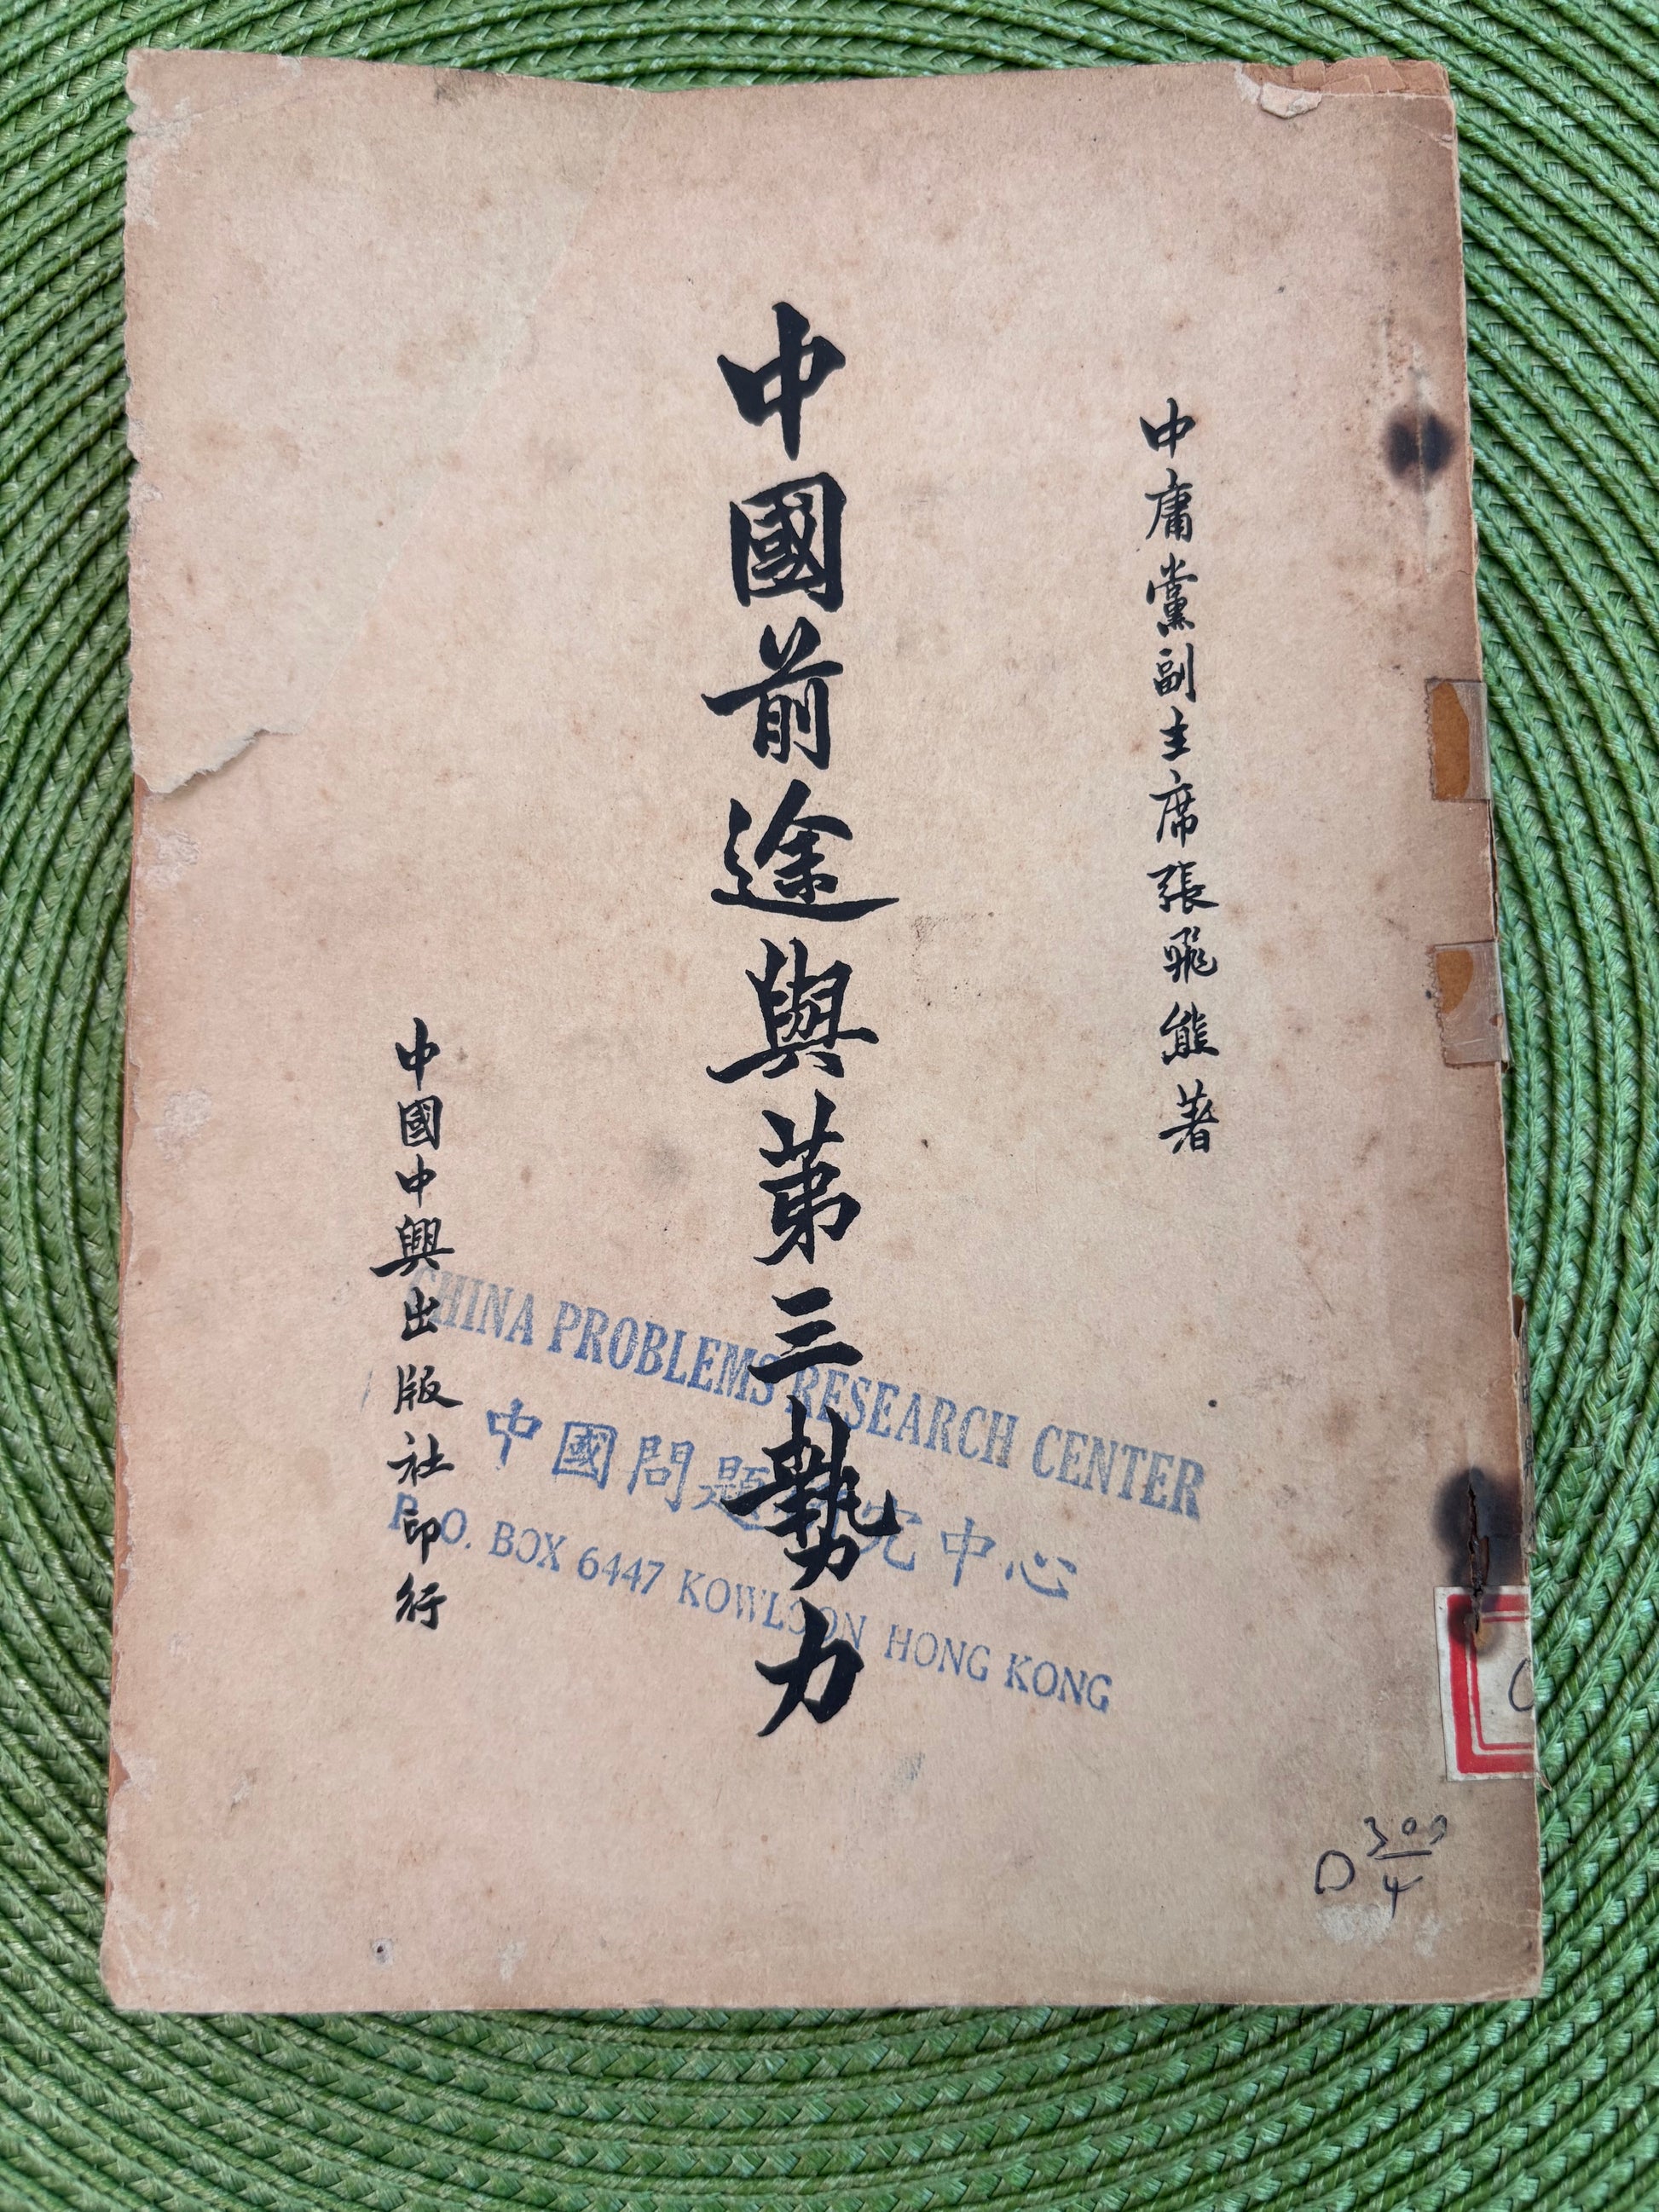 中庸黨副主席張飛熊著
中國前途與第三勢力
中國中興出版社印行
CHINA PROBLEMS RESEARCH CENTER
中國問題研究中心
P.O. BOX 6447 KOWLOON HONG KONG
D 300
4